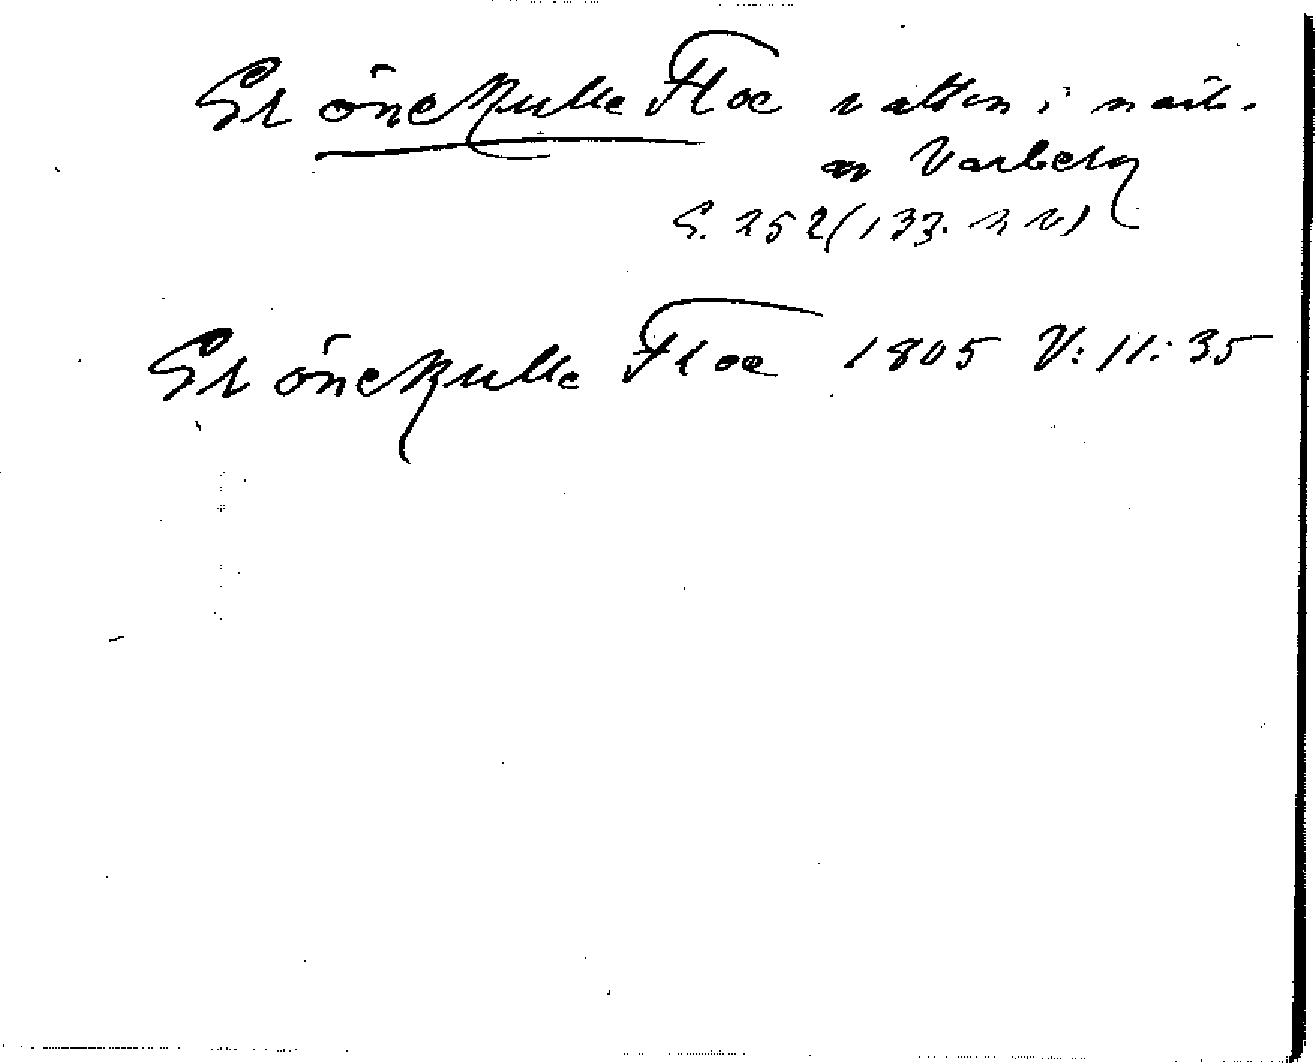 Grönekulle Floe vatten i närh.
av Varberg
S. 252 (133.
Grönekulle Floe 1805 V: 11: 35